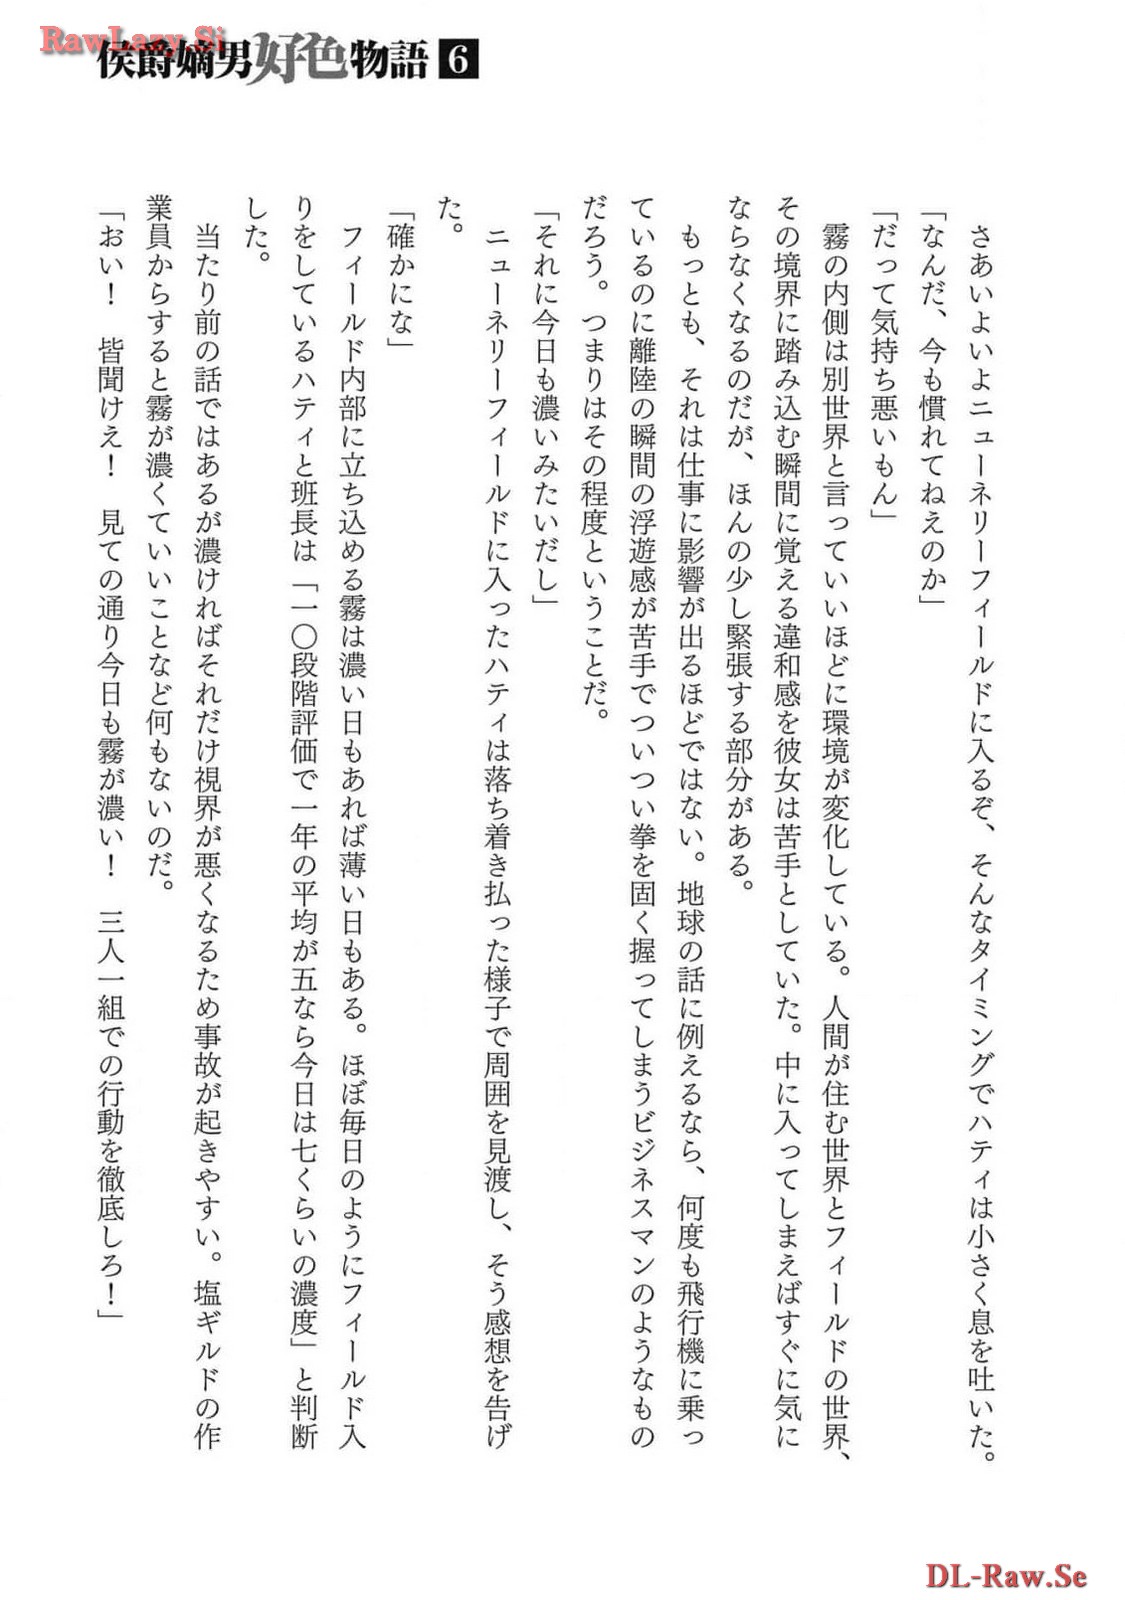 RawLazy.Si
侯爵嫡男好色物語 6
さあいよいよニューネリーフィールドに入るぞ、そんなタイミングでハティは小さく息を吐いた。
「なんだ、今も慣れてねえのか」
「だって気持ち悪いもん」
霧の内側は別世界と言っていいほどに環境が変化している。人間が住む世界とフィールドの世界、
その境界に踏み込む瞬間に覚える違和感を彼女は苦手としていた。中に入ってしまえばすぐに気に
ならなくなるのだが、ほんの少し緊張する部分がある。
もっとも、それは仕事に影響が出るほどではない。地球の話に例えるなら、何度も飛行機に乗っ
ているのに離陸の瞬間の浮遊感が苦手でついつい拳を固く握ってしまうビジネスマンのようなもの
だろう。つまりはその程度ということだ。
「それに今日も濃いみたいだし」
ニューネリーフィールドに入ったハティは落ち着き払った様子で周囲を見渡し、そう感想を告げ
た。
「確かにな」
フィールド内部に立ち込める霧は濃い日もあれば薄い日もある。ほぼ毎日のようにフィールド入
りをしているハティと班長は「一〇段階評価で一年の平均が五なら今日は七くらいの濃度」と判断
した。
当たり前の話ではあるが濃ければそれだけ視界が悪くなるため事故が起きやすい。塩ギルドの作
業員からすると霧が濃くていいことなど何もないのだ。
「おい！　皆聞けえ！　見ての通り今日も霧が濃い！　三人一組での行動を徹底しろ！」
DL-Raw.Se